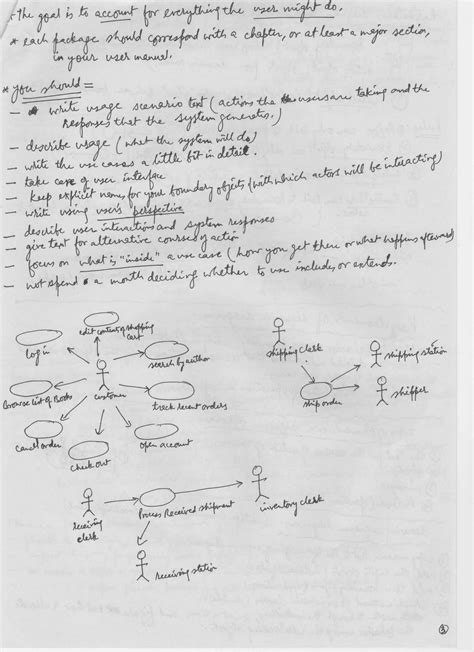 * The goal is to account for everything the user might do.
* each package should correspond with a chapter, or at least a major section,
in your user manual.
* you should =
— write usage scenario text (actions the users are taking and the
responses that the system generates.)
— describe usage (what the system will do)
— write the use cases a little bit in detail.
— take care of user interface
— keep explicit names for your boundary objects (with which actors will be interacting)
— write using user's perspective
— describe user interactions and system responses
— give text for alternative courses of action
— focus on what is "inside" a use case (how you get there or what happens afterward)
— not spend a month deciding whether to use includes or extends.
edit contents of shopping
cart
log in
search by author
customer
Browse list of Books
track recent orders
cancel order
open account
check out
shipping clerk
shipping station
shipper
ship order
receiving
clerk
Process Received shipment
inventory clerk
receiving station
3